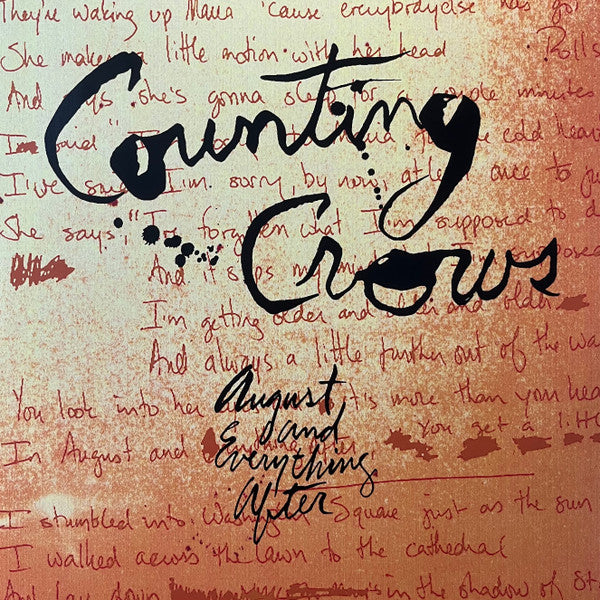 They're waking up Maria 'cause everybodyelse has go
She makes a little motion with her head
Rolls
And says she's gonna sleep for a couple minutes
Counting
Crows
I've said I'm sorry, by now, at least once to ju
She says, "I've forgotten what I'm supposed to d
And it slips my mind
I'm getting older and older and older
And always a little further out of the wa
August
and
Everything
After
You look into her it's more than your hea
You get a litt
In August and
I stumbled into Washington Square just as the sun
I walked across the lawn to the cathedral
And lay down in the shadow of St